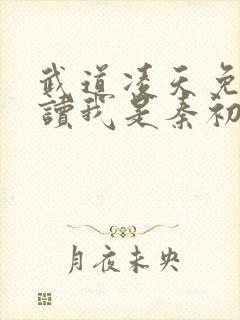 武道凌天免
讀我是秦初
月夜未央